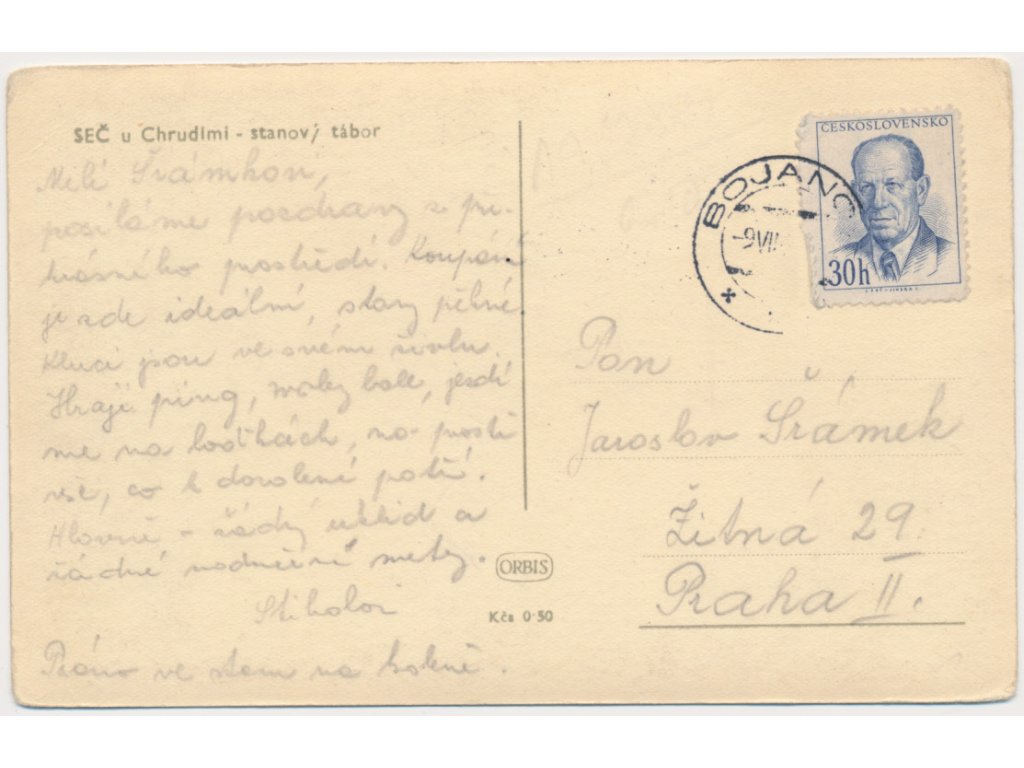 SEČ u Chrudimi - stanový tábor
Milí Šrámkovi,
posíláme pozdravy z pře-
krásného prostředí. Koupání
je zde ideální, stany pěkné
Kluci jsou ve svém živlu.
Hrají ping, volley ball, jezdí
me na loďkách, na-prostě
vše, co k dovolené patří.
Hlavně - žádný uklid a
žádné
Psáno ve stanu na koleně.
ORBIS
Kčs 0·50
ČESKOSLOVENSKO
30h
BOJANO
-9.VII.
Pan
Jaroslav Šrámek
Žitná 29
Praha II.